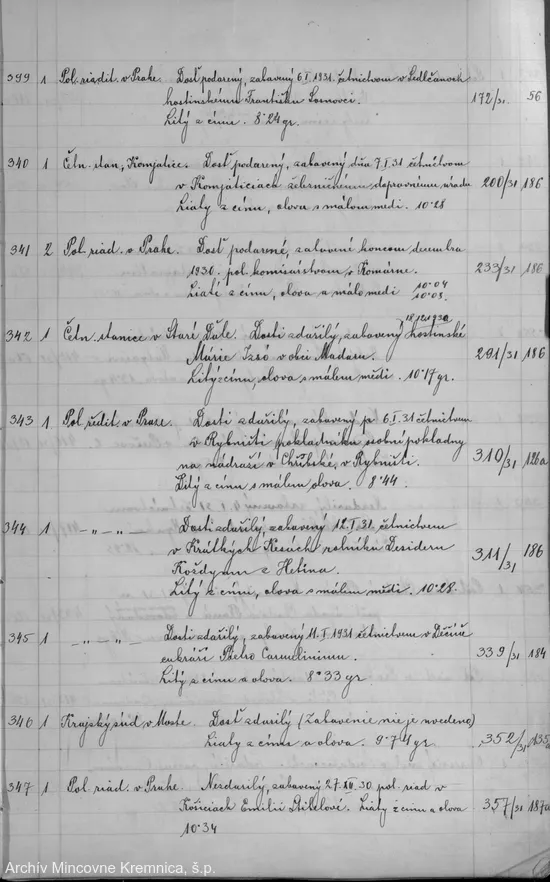 399 1 Pol. riadit. v Prahe. Dosť podarený, zabavený 6.I.1931. četnictvom v Sedlčanoch
hostinskému Františku Sosnovci. 172/31. 56
Litý z cínu. 8˙24 gr.
340 1 Četn. stan. Komjatice. Dosť podarený, zabavený dňa 7.I.31 četníctvom
v Komjaticiach žebrníckemu dopravnému úradu 200/31 186
Liaty z cínu, olova s málom medi. 10˙28
341 2 Pol. riad. v Prahe. Dosť podarené, zabavené koncom decembra
1930. pol. komisárstvom v Komárne. 233/31 186
Liaté z cínu, olova a málo medi 10˙04
10˙03.
18/12 1930
342 1 Četn. stanice v Staré Ďale. Dosti zdařilý, zabavený hostinské
Márie Izso v obci Madaru. 291/31 186
Litý z cínu, olova s málem mědi. 10˙17 gr.
343 1 Pol. ředit. v Praze. Dosti zdařilý, zabavený p. 6.I.31 četnictvem
v Rybništi pokladníku osobní pokladny
na nádraží v Chřibské, v Rybništi. 310/31 126a
Litý z cínu s málem olova. 8˙44.
344 1 -„- -„- Dosti zdařilý, zabavený 12.I.31. četnictvem
v Krátkých Kesách rolníku Desideru 311/31 186
Koždyam z Hetína.
Litý z cínu, olova s málem medi. 10˙28.
345 1 -„- -„- Dosti zdařilý, zabavený 11.I.1931 četnictvom v Děčíně
cukráři Pietro Carmelinimu. 339/31 184
Litý z cínu a olova. 8˙33 gr
346 1 Krajský súd v Moste. Dosť zdarilý (Zabavenie nie je uvedené)
Liaty z cínu a olova. 9˙74 gr. 352/31 135a
347 1 Pol. riad. v Prahe. Nezdarilý, zabavený 27.XII.30. pol. riad. v
Košiciach Emilii Stibelové. Liaty z cínu a olova 357/31 187a
10˙34
Archív Mincovne Kremnica, š.p.